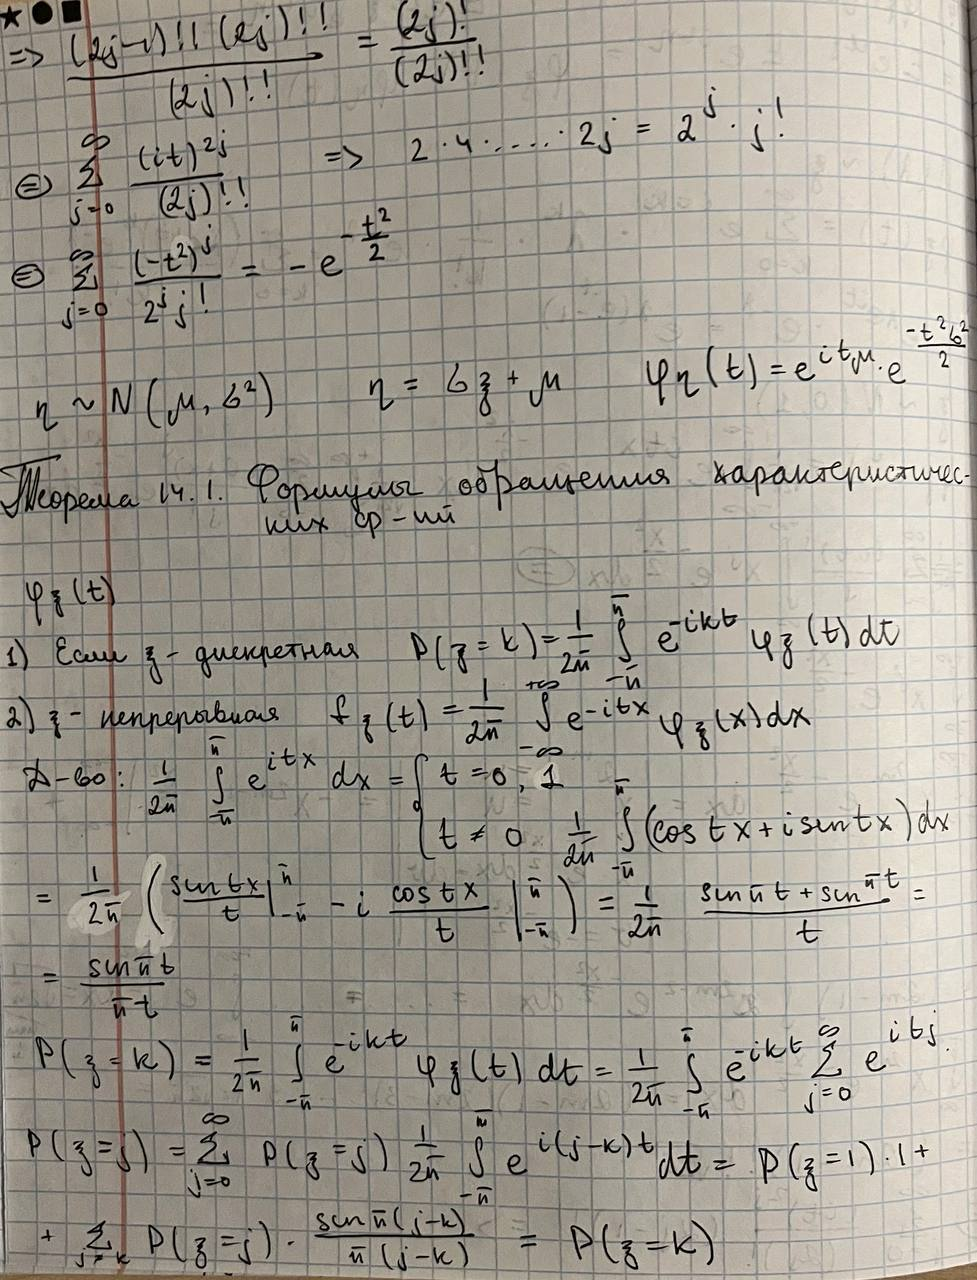 => (2j-1)!! (2j)!! / (2j)!! = (2j)! / (2j)!!
(=) ∑_{j=0}^{∞} (it)^{2j} / (2j)!! => 2·4·....·2j = 2^j · j!
(=) ∑_{j=0}^{∞} (-t²)^j / 2^j j! = - e^{-t²/2}
η ~ N(μ, σ²) η = σξ + μ φη(t) = e^{itμ} · e^{-t²σ²/2}
Теорема 14.1. Формулы обращения характеристичес-
ких ф-ий
φξ(t)
1) Если ξ - дискретная P(ξ=k) = 1/2π ∫_{-π}^{π} e^{-ikt} φξ(t) dt
2) ξ - непрерывная fξ(t) = 1/2π ∫_{-∞}^{+∞} e^{-itx} φξ(x) dx
Д-во: 1/2π ∫_{-π}^{π} e^{itx} dx = { t = 0, 1
t ≠ 0 1/2π ∫_{-π}^{π} (cos tx + i sin tx) dx
= 1/2π ( sin tx / t |_{-π}^{π} - i cos tx / t |_{-π}^{π} ) = 1/2π (sin πt + sin πt) / t =
= sin πt / πt
P(ξ=k) = 1/2π ∫_{-π}^{π} e^{-ikt} φξ(t) dt = 1/2π ∫_{-π}^{π} e^{-ikt} ∑_{j=0}^{∞} e^{itj} ·
P(ξ=j) = ∑_{j=0}^{∞} P(ξ=j) 1/2π ∫_{-π}^{π} e^{i(j-k)t} dt = P(ξ=1)·1 +
+ ∑_{j≠k} P(ξ=j) · sin π(j-k) / π(j-k) = P(ξ=k)